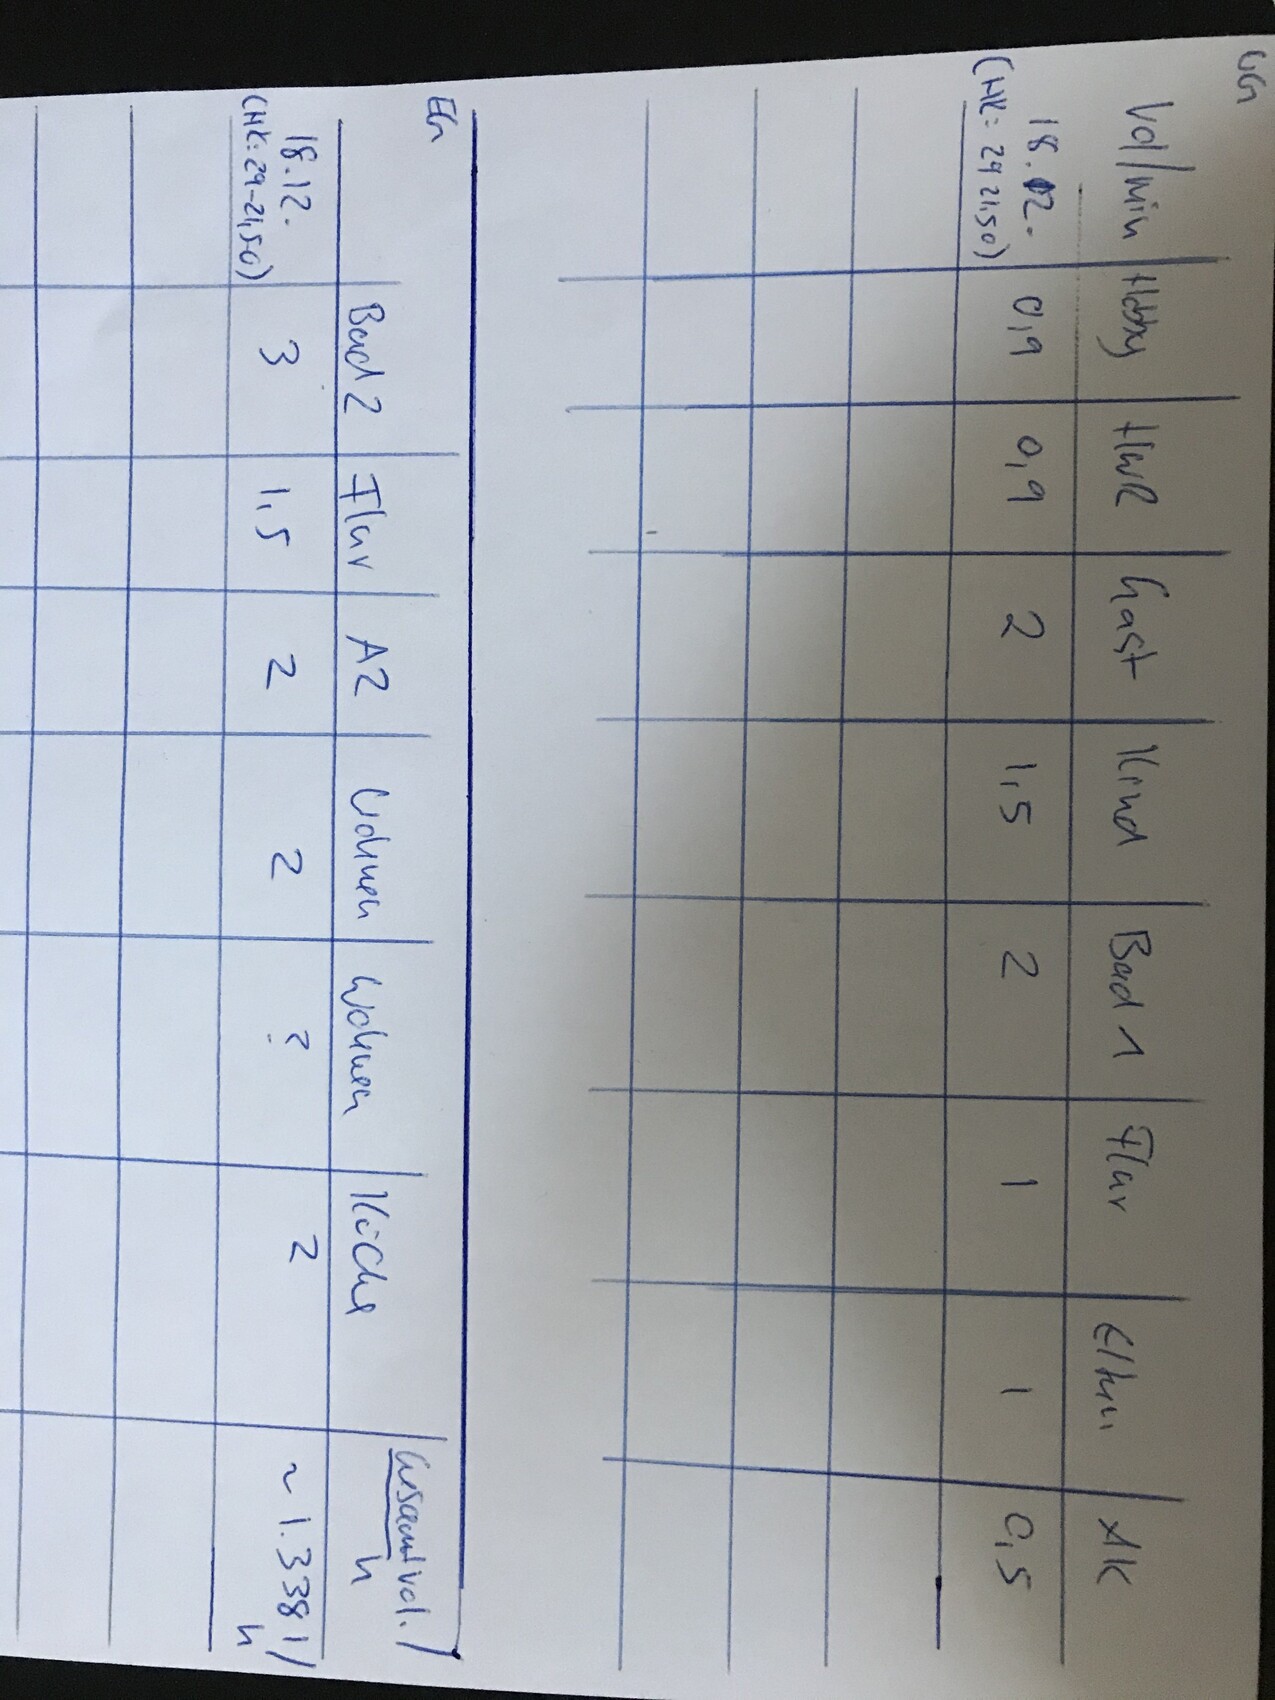 OG
Vol/min Hobby HWR Gast Kind Bad 1 Flur Eltern AK
18.12. 0,9 0,9 2 1,5 2 1 1 0,5
(HK: 29 21,50)
EG
Bad 2 Flur AZ Wohnen Wohnen Küche Gesamtvol./
h
18.12. 3 1,5 2 2 ? 2 ~ 1.338 l/
(HK: 29-21,50) h